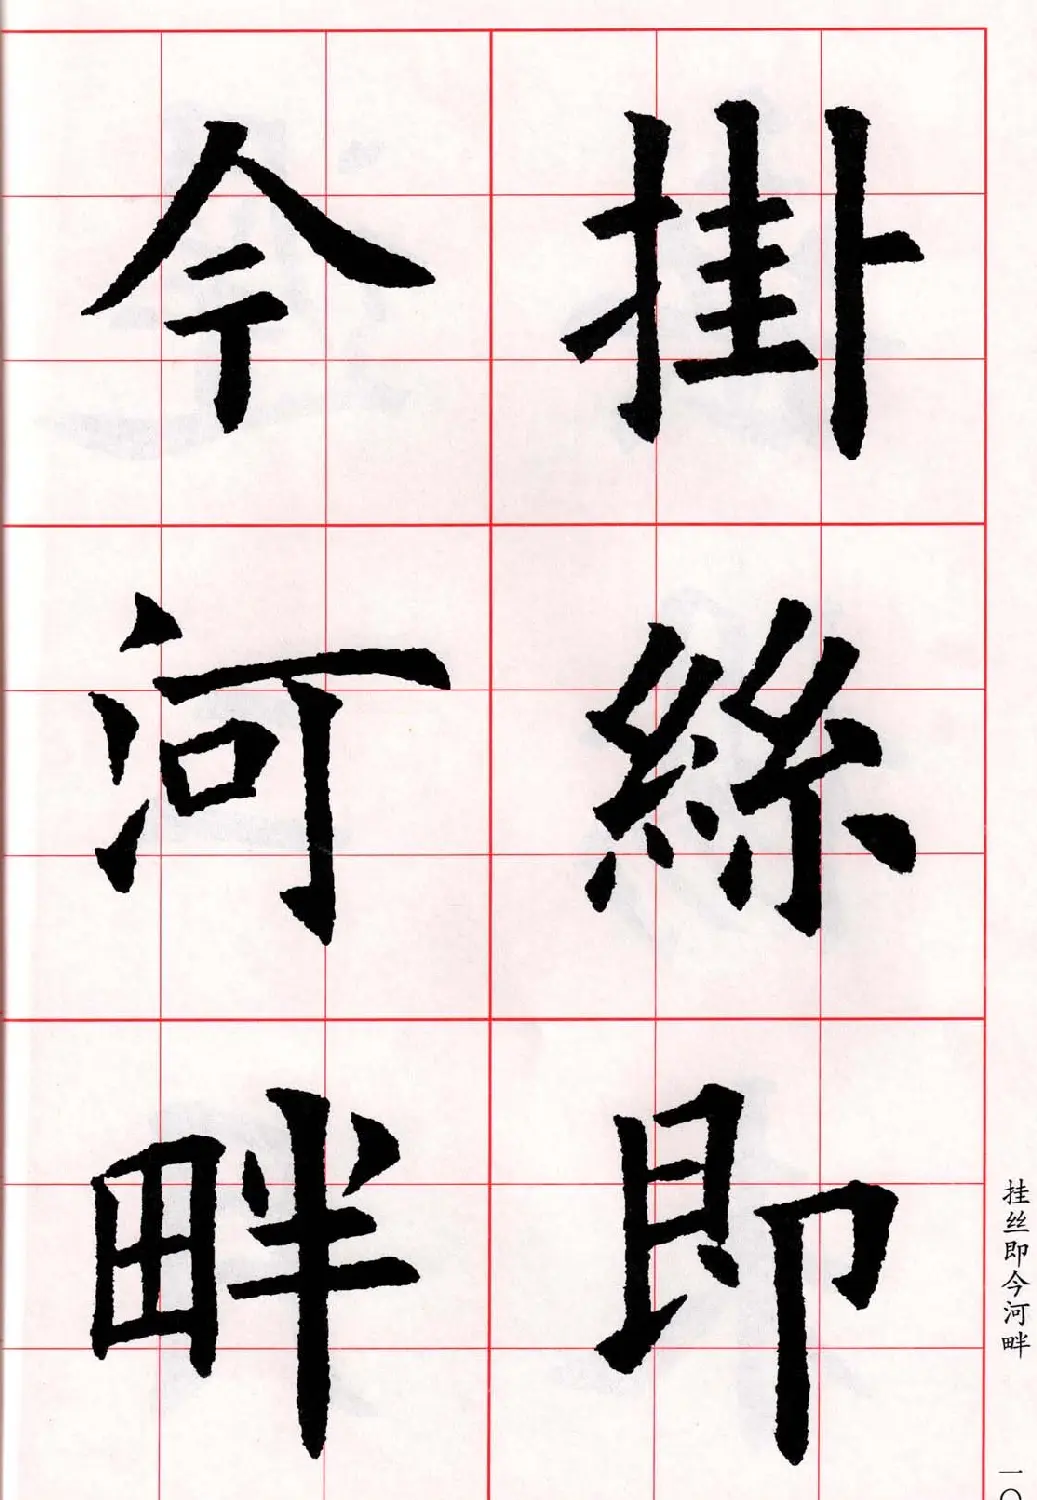 掛絲即
今河畔
挂丝即今河畔
一〇